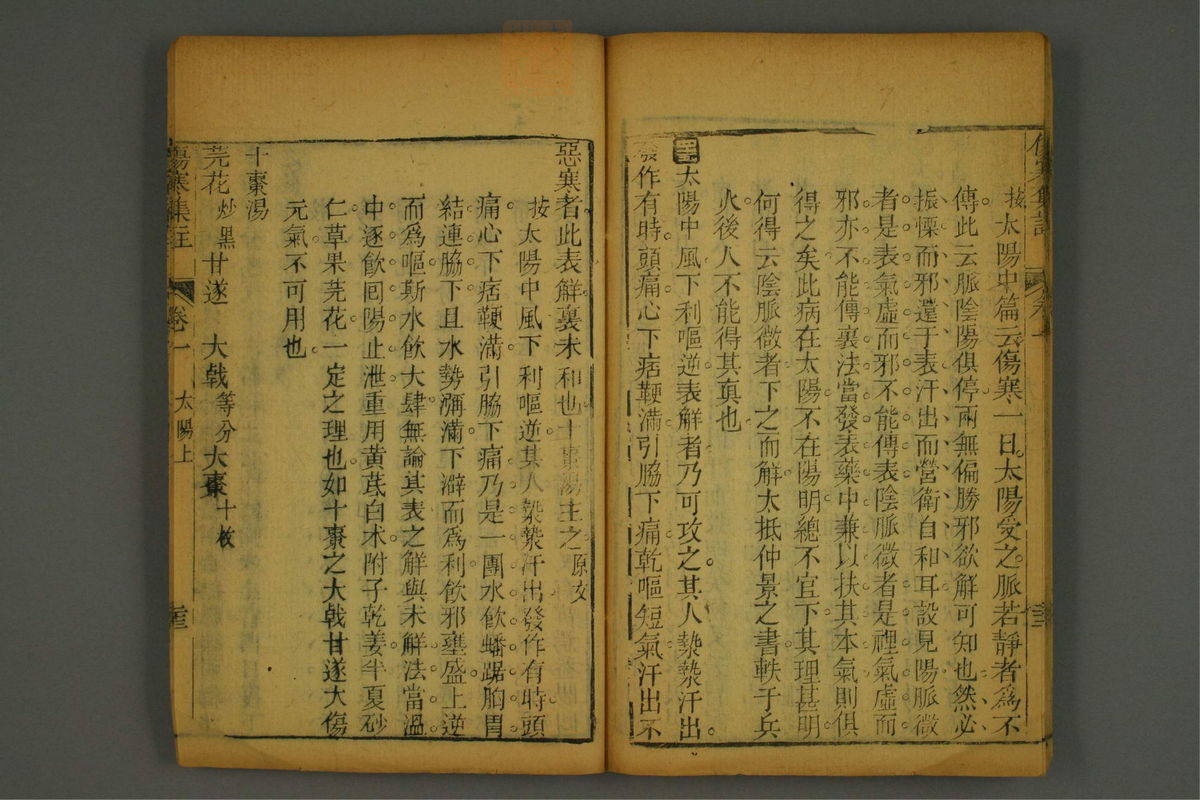 傷寒集註
卷一
按太陽中篇云傷寒一日太陽受之脈若靜者爲不
傳此云脈陰陽俱停兩無偏勝邪欲解可知也然必
振慄而邪還于表汗出而營衛自和耳設見陽脈微
者是表氣虛而邪不能傳表陰脈微者是裡氣虛而
邪亦不能傳裏法當發表藥中兼以扶其本氣則俱
得之矣此病在太陽不在陽明總不宜下其理甚明
何得云陰脈微者下之而解大抵仲景之書軼于兵
火後人不能得其眞也
太陽中風下利嘔逆表解者乃可攻之其人漐漐汗出
發作有時頭痛心下痞鞕滿引脇下痛乾嘔短氣汗出不
惡寒者此表解裏未和也十棗湯主之原文
按太陽中風下利嘔逆其人漐漐汗出發作有時頭
痛心下痞鞕滿引脇下痛乃是一團水飲蟠踞胸胃
結連脇下且水勢瀰滿下澼而爲利飲邪壅盛上逆
而爲嘔斯水飲大肆無論其表之解與未解法當溫
中逐飲囘陽止泄重用黄茋白术附子乾姜半夏砂
仁草果芫花一定之理也如十棗之大戟甘遂大傷
元氣不可用也
十棗湯
芫花炒黑甘遂 大戟等分大棗十枚
傷寒集註 卷一 太陽上